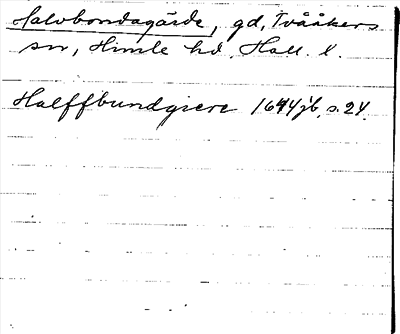 Halvbondagärde, gd, Tvååkers
sn, Himle hd, Hall. l.
Halffbundgiere 1644 jb, s. 24.